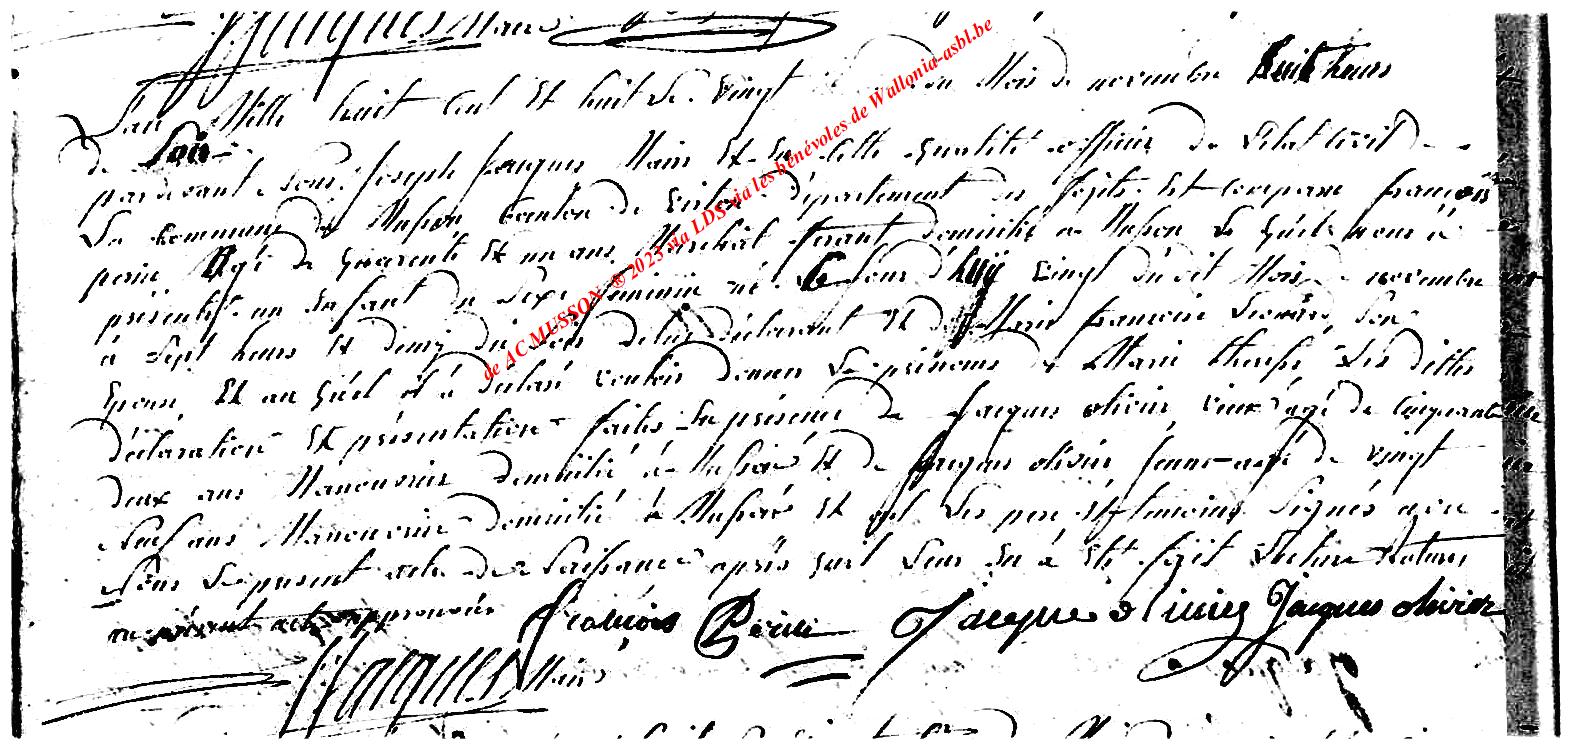 Jacques Maire
L'an Mille huit Cent Et huit Le Vingt du Mois de novembre huit heures
de Soir
pardevant Nous Joseph Jacques Maire Et En Cette qualité officier de L'Etat Civil de
La Commune de Musson Canton de Virton département des forêts Est comparu françois
perin Agé de quarente Et un ans Maréchal ferant domicilié à Musson Le quel nous à
présenté un Enfant du Sexe feminin né Le Jour d'huÿ vingt du dit Mois de novembre
à Sept heures Et demiy du soir de lui déclarant Et de Marie françoise Son
Epouse Et au quel il à déclaré vouloir donner Le prénoms de Marie therese Les dittes
déclaration Et présentation faites En présence de Jacques olivier vieux agé de Cinquante
deux ans Manouvrier domicilié à Musson Et de Jacques olivier Jeune agé de vingt
Neuf ans Manouvrier domicilié à Musson Et ont Les pere Et temoins Signés avec
Nous Le present acte de Naissance après qu'il Leur En à Eté fait Lecture
au présent acte approuvée françois Perin Jacque olivier Jacques olivier
Jacques Maire
de AC MUSSON ® 2023 via LDS via les bénévoles de Wallonia-asbl.be